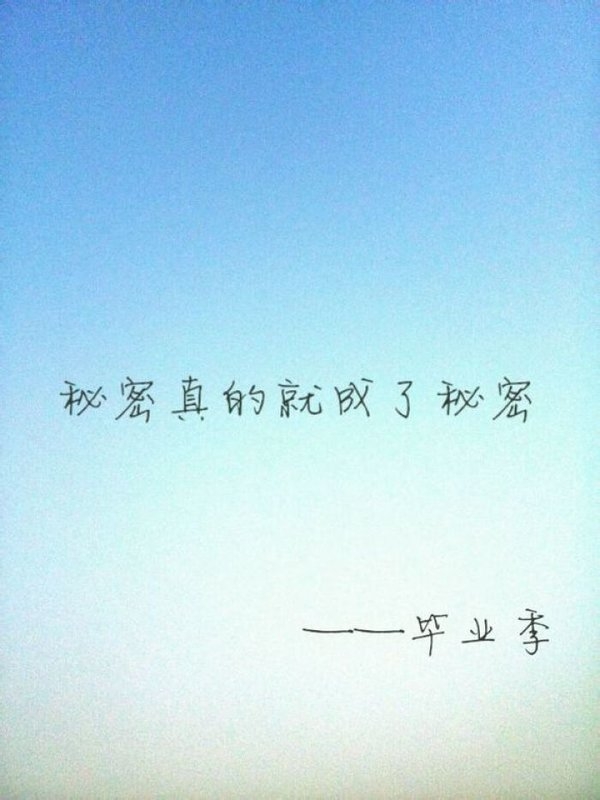 秘密真的就成了秘密
——毕业季